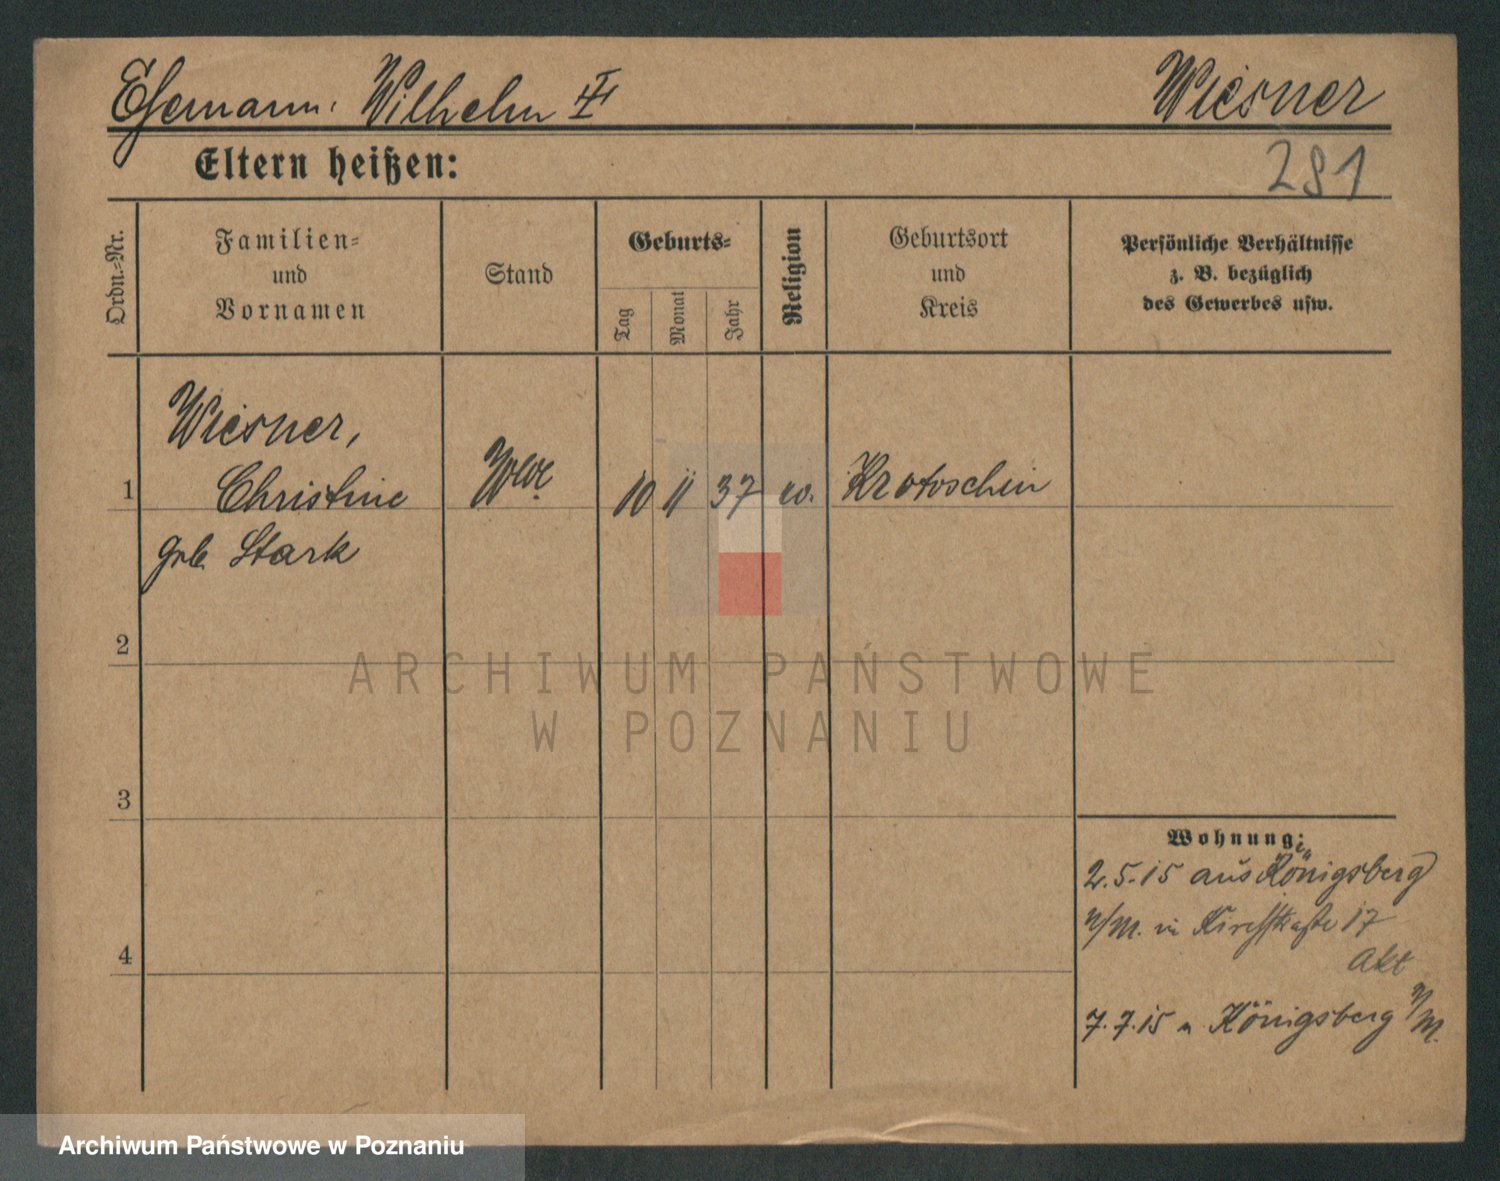 Ehemann: Wilhelm ‡ Wiesner
Eltern heißen:
281
Ordn.-Nr.
Familien-
und
Vornamen
Stand
Geburts-
Tag
Monat
Jahr
Religion
Geburtsort
und
Kreis
Persönliche Verhältnisse
z. B. bezüglich
des Gewerbes usw.
1
Wiesner,
Christine
geb. Stark
Wwe
10 11 37 ev. Krotoschin
2
3
4
Wohnung:
2.5.15 aus Königsberg
N/M. in 17
Akt
7.7.15 n Königsberg N/M.
ARCHIWUM PAŃSTWOWE
W POZNANIU
Archiwum Państwowe w Poznaniu